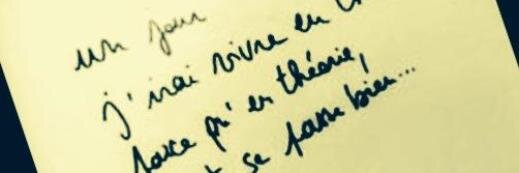 un jour
j'irai vivre en
parce qu'en théorie,
se passe bien...